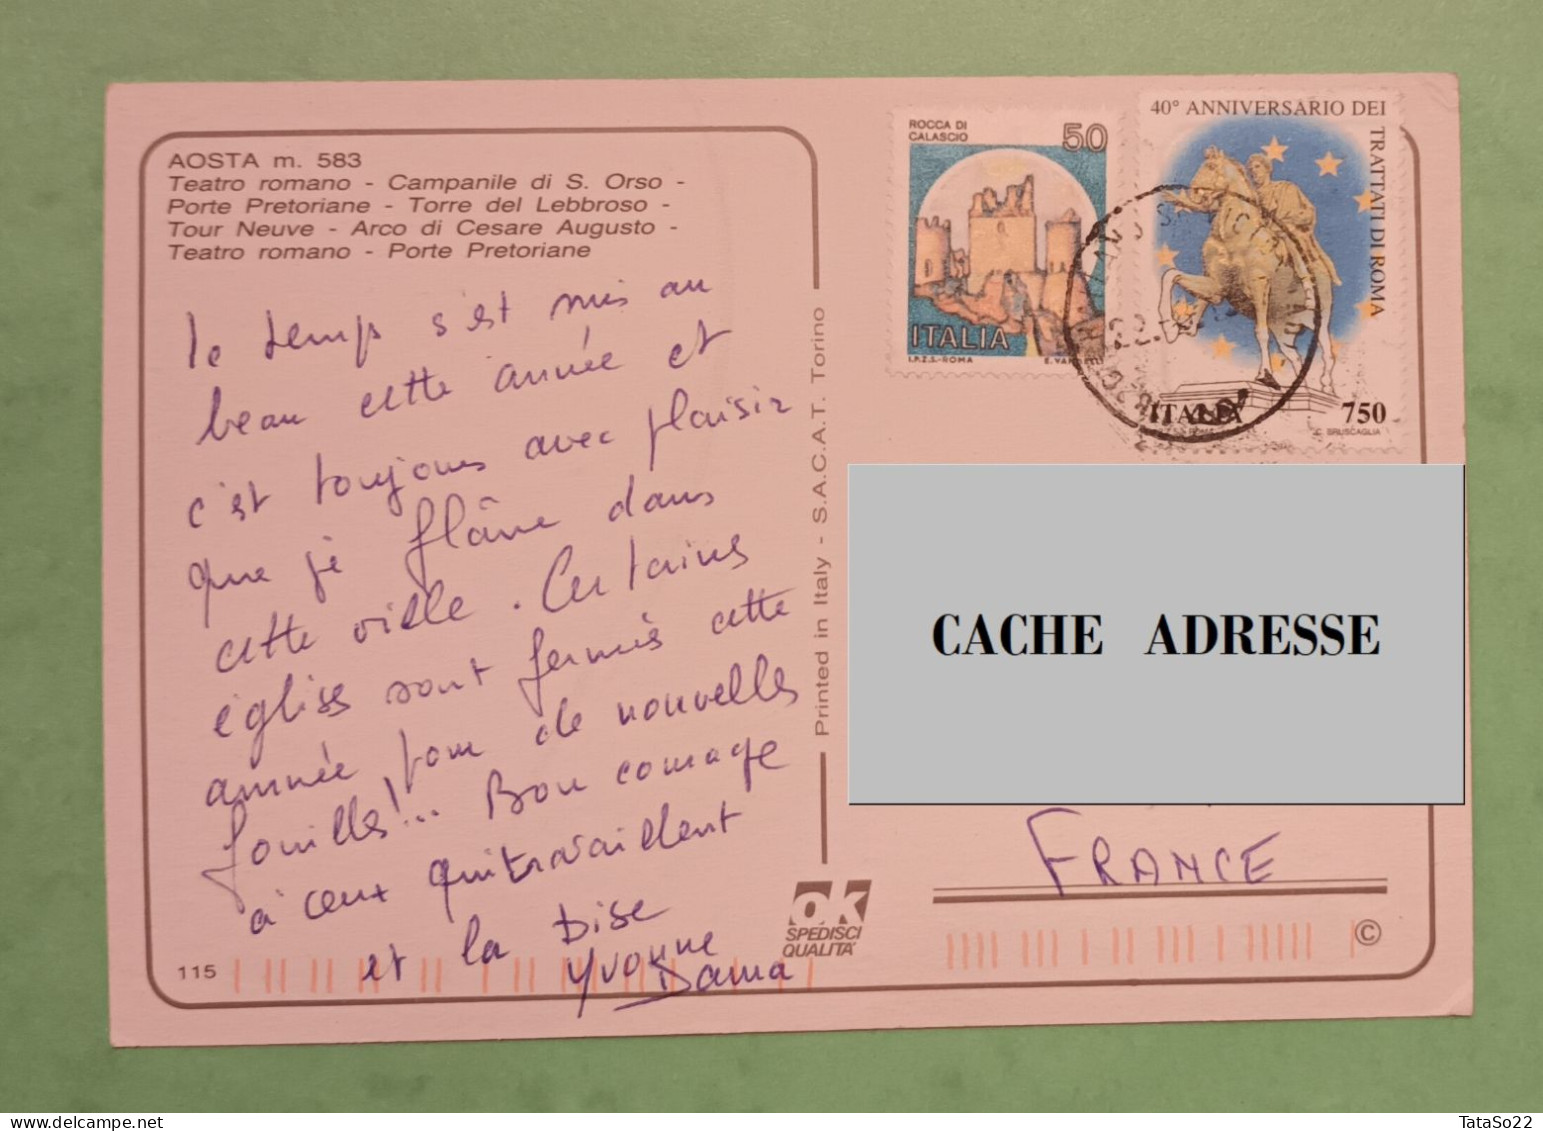 AOSTA m. 583
Teatro romano - Campanile di S. Orso -
Porte Pretoriane - Torre del Lebbroso -
Tour Neuve - Arco di Cesare Augusto -
Teatro romano - Porte Pretoriane
le temps s'est mis au
beau cette année et
c'est toujours avec plaisir
que je flâne dans
cette ville. Certains
églises sont fermés cette
année pour de nouvelles
fouilles!... Bon courage
à ceux qui travaillent
et la Bise
Yvonne
Dama
115
Printed in Italy - S.A.C.A.T. Torino
ok
SPEDISCI
QUALITA'
ROCCA DI
CALASCIO
50
ITALIA
I.P.Z.S.-ROMA
40° ANNIVERSARIO DEI
TRATTATI DI ROMA
ITALIA
750
C. BRUSCAGLIA
CACHE ADRESSE
FRANCE
©
TataSo22